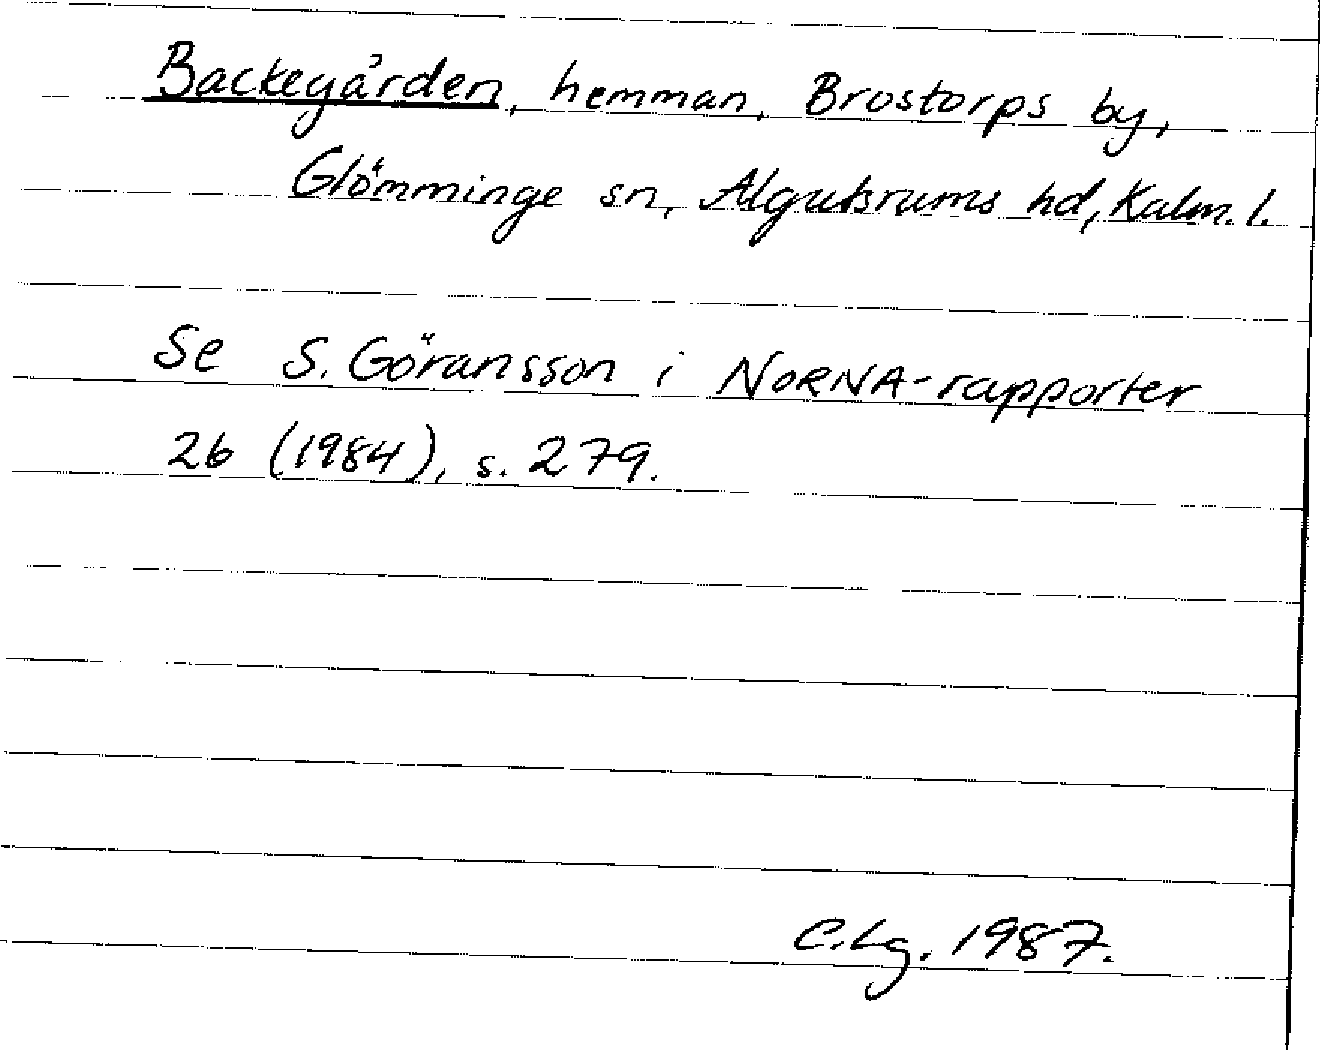 Backegården, hemman, Brostorps by,
Glömminge sn, Algutsrums hd, Kalm. l.
Se S. Göransson i NORNA-rapporter
26 (1984), s. 279.
C.Lg. 1987.